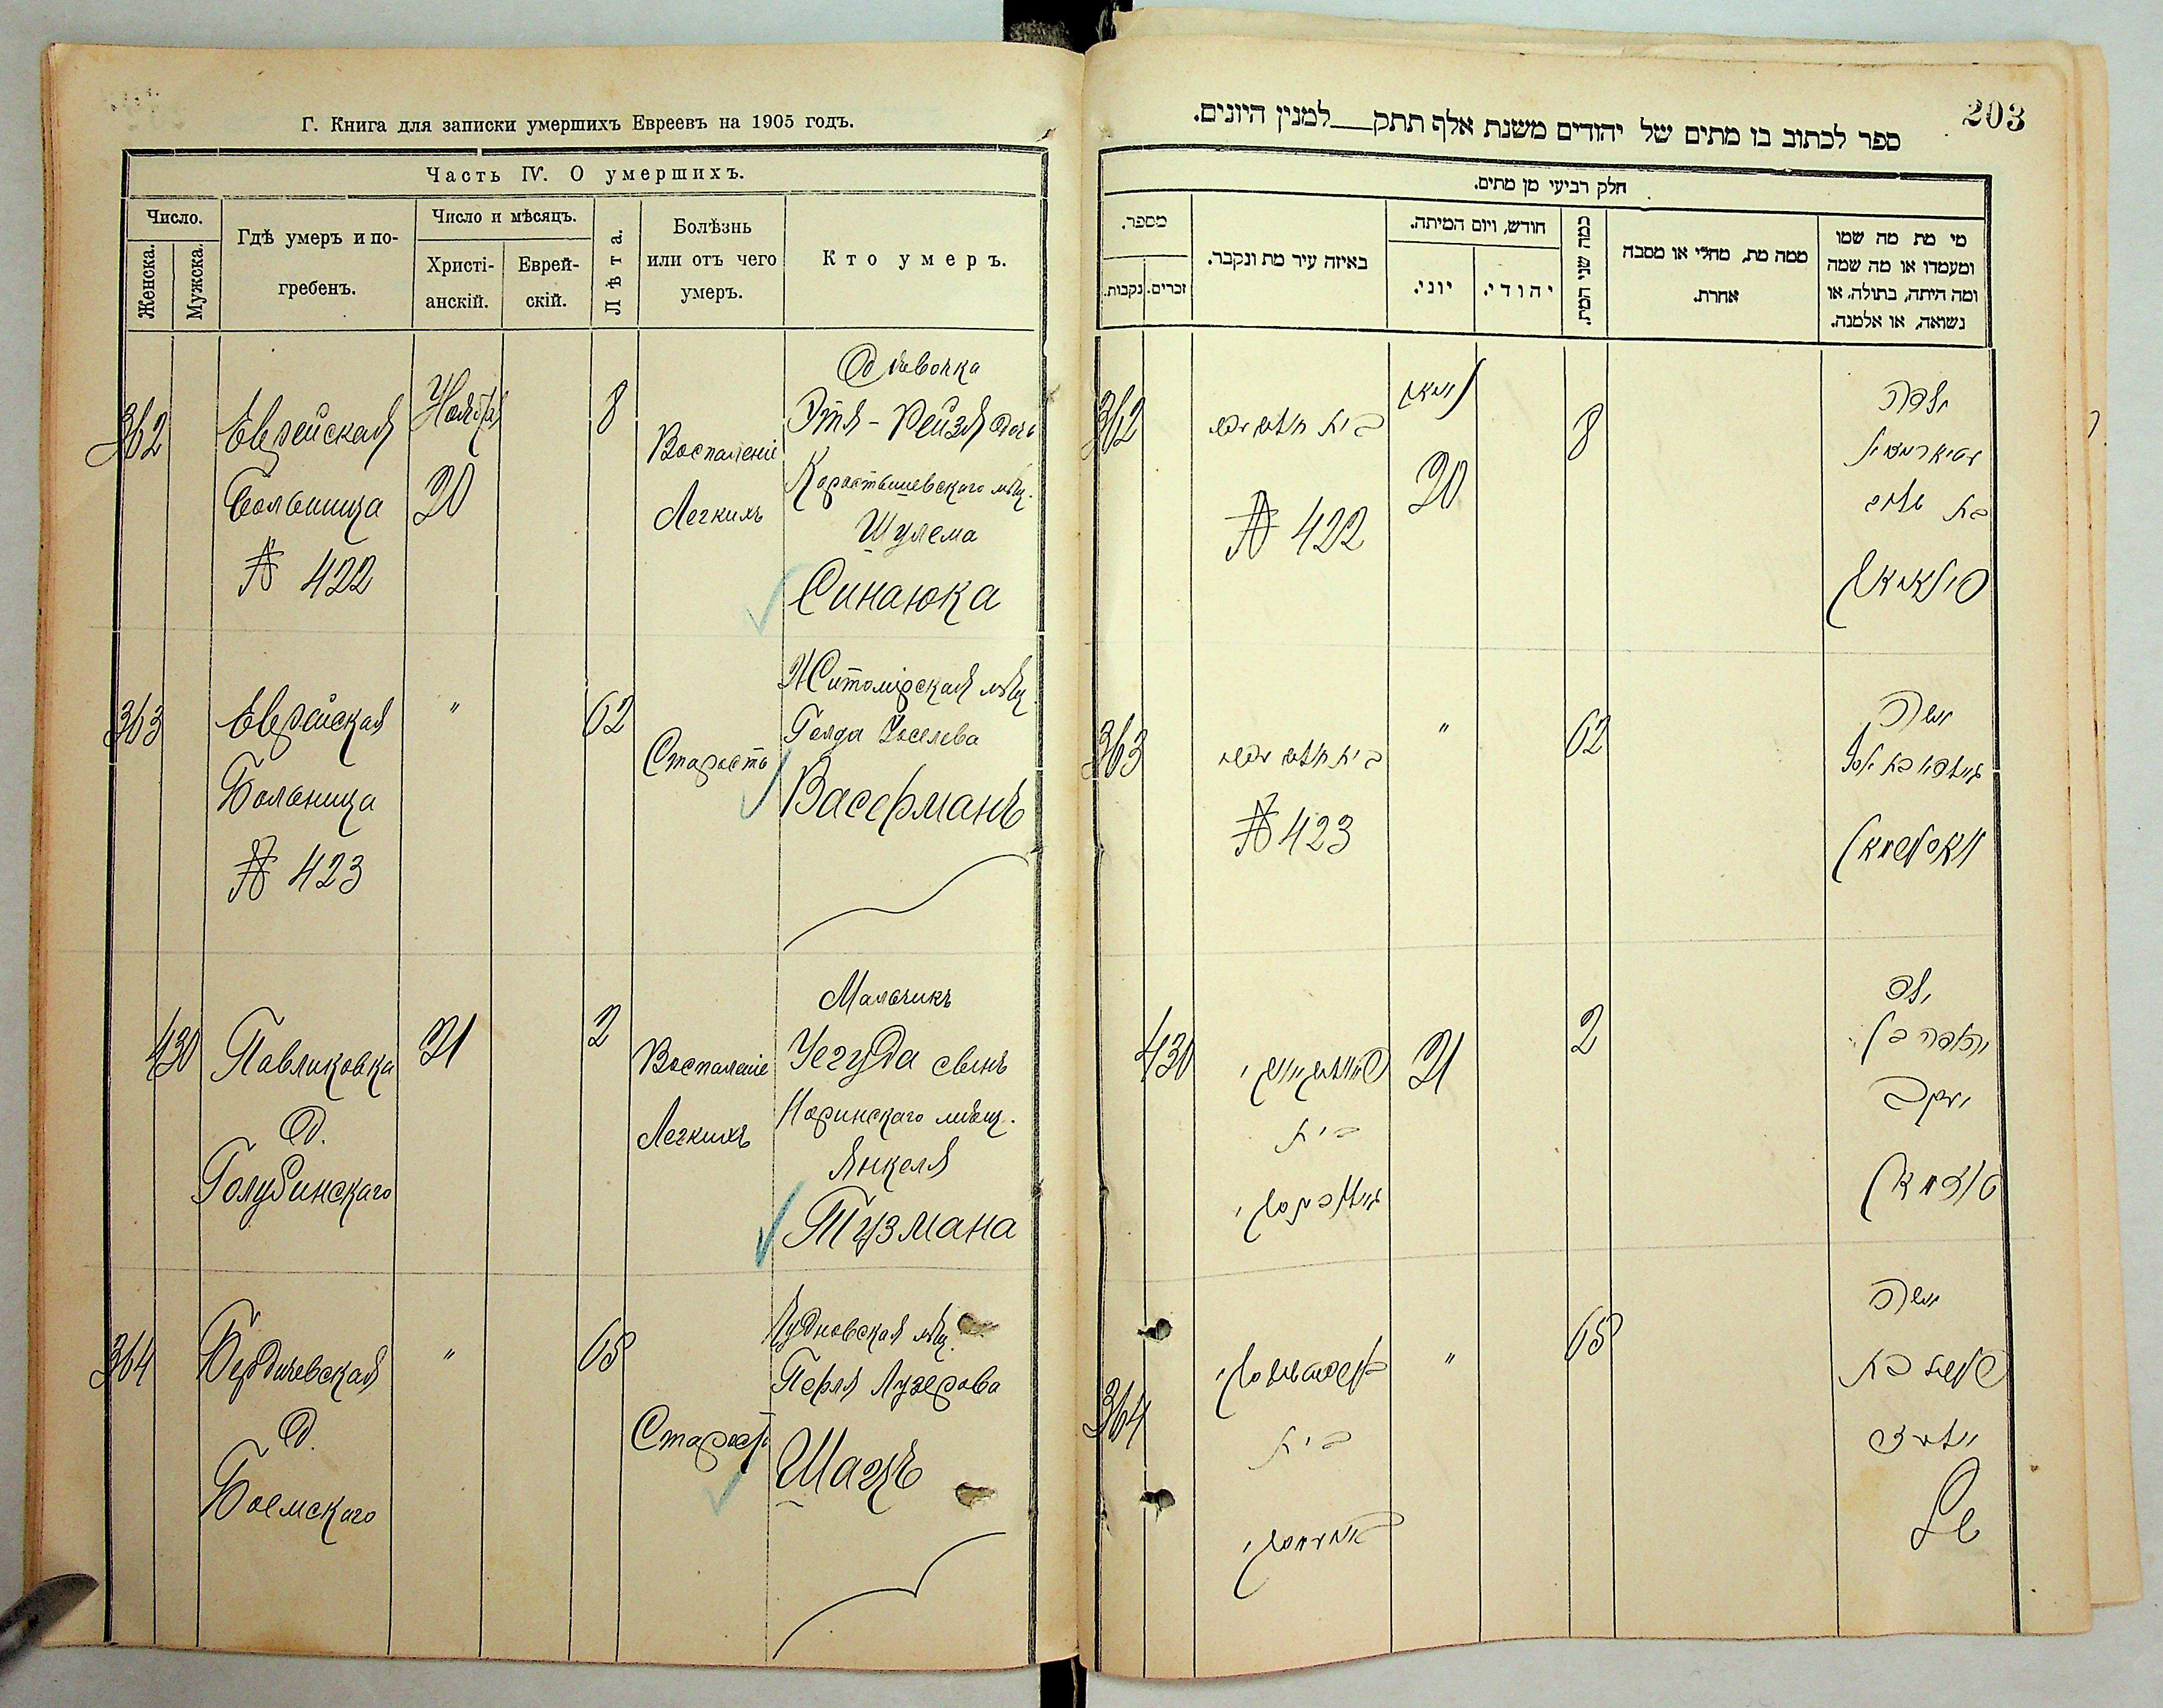 Г. Книга для записки умершихъ Евреевъ на 1905 годъ.
Часть IV. О умершихъ.
Число.
Женска.
Мужска.
Гдѣ умеръ и по-
гребенъ.
Число и мѣсяцъ.
Христі-
анскій.
Еврей-
скій.
Лѣта.
Болѣзнь
или отъ чего
умеръ.
Кто умеръ.
362
Еврейская
Больница
№ 422
Ноября
20
8
Воспаленіе
Легкихъ
Дѣвочка
Этя-Рейзя дочь
Коростышевскаго мѣщ.
Шулема
Синаюка
363
Еврейская
Больница
№ 423
"
62
Старость
Житомірская мѣщ.
Голда Иоселева
Васерманъ
430
Павликовка
д.
Голубинскаго
21
2
Воспаленіе
Легкихъ
Мальчикъ
Иегуда сынъ
Норинскаго мѣщ.
Янкеля
Тузмана
364
Бердичевская
д.
Боемскаго
"
65
Старость
Чудновская мѣщ.
Перля Лузерова
Шацъ
203
ספר לכתוב בו מתים של יהודים משנת אלף תתק__למנין היונים.
חלק רביעי מן מתים.
מספר.
נקבות.
זכרים.
באיזה עיר מת ונקבר.
חודש, ויום המיתה.
יוני.
יהודי.
כמה שני המת.
ממה מת, מחלי או מסבה
אחרת.
מי מת מה שמו
ומעמדו או מה שמה
ומה היתה, בתולה, או
נשואה, או אלמנה.
362
№ 422
20
8
ילדה
363
№ 423
"
62
אשה
וואסערמאן
430
בית
21
2
ילד
יהודה בן
יעקב
טוזמאן
364
בית
"
65
אשה
פערל בת
שץ